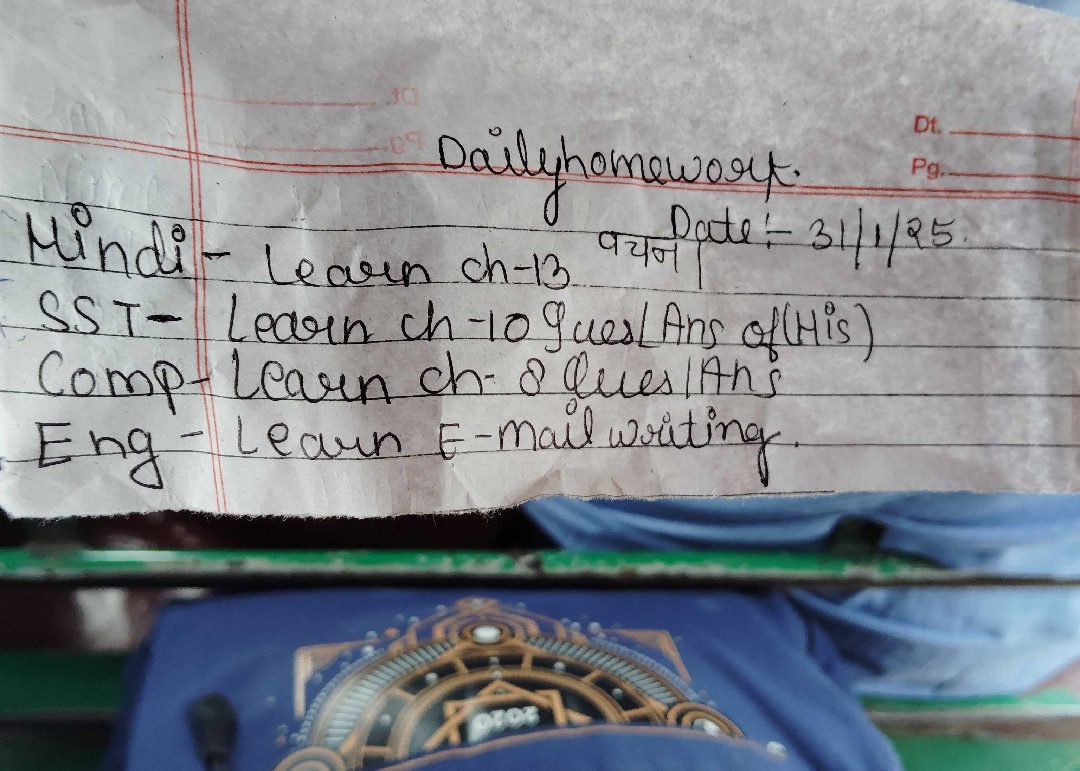 Dt.
Pg.
Dailyhomework.
Date:- 31/1/25.
Hindi - Learn ch-13 वचन
SST - Learn ch-10 Ques/Ans of (His)
Comp - Learn ch-8 Ques/Ans
Eng - Learn E-mail writing.
2020